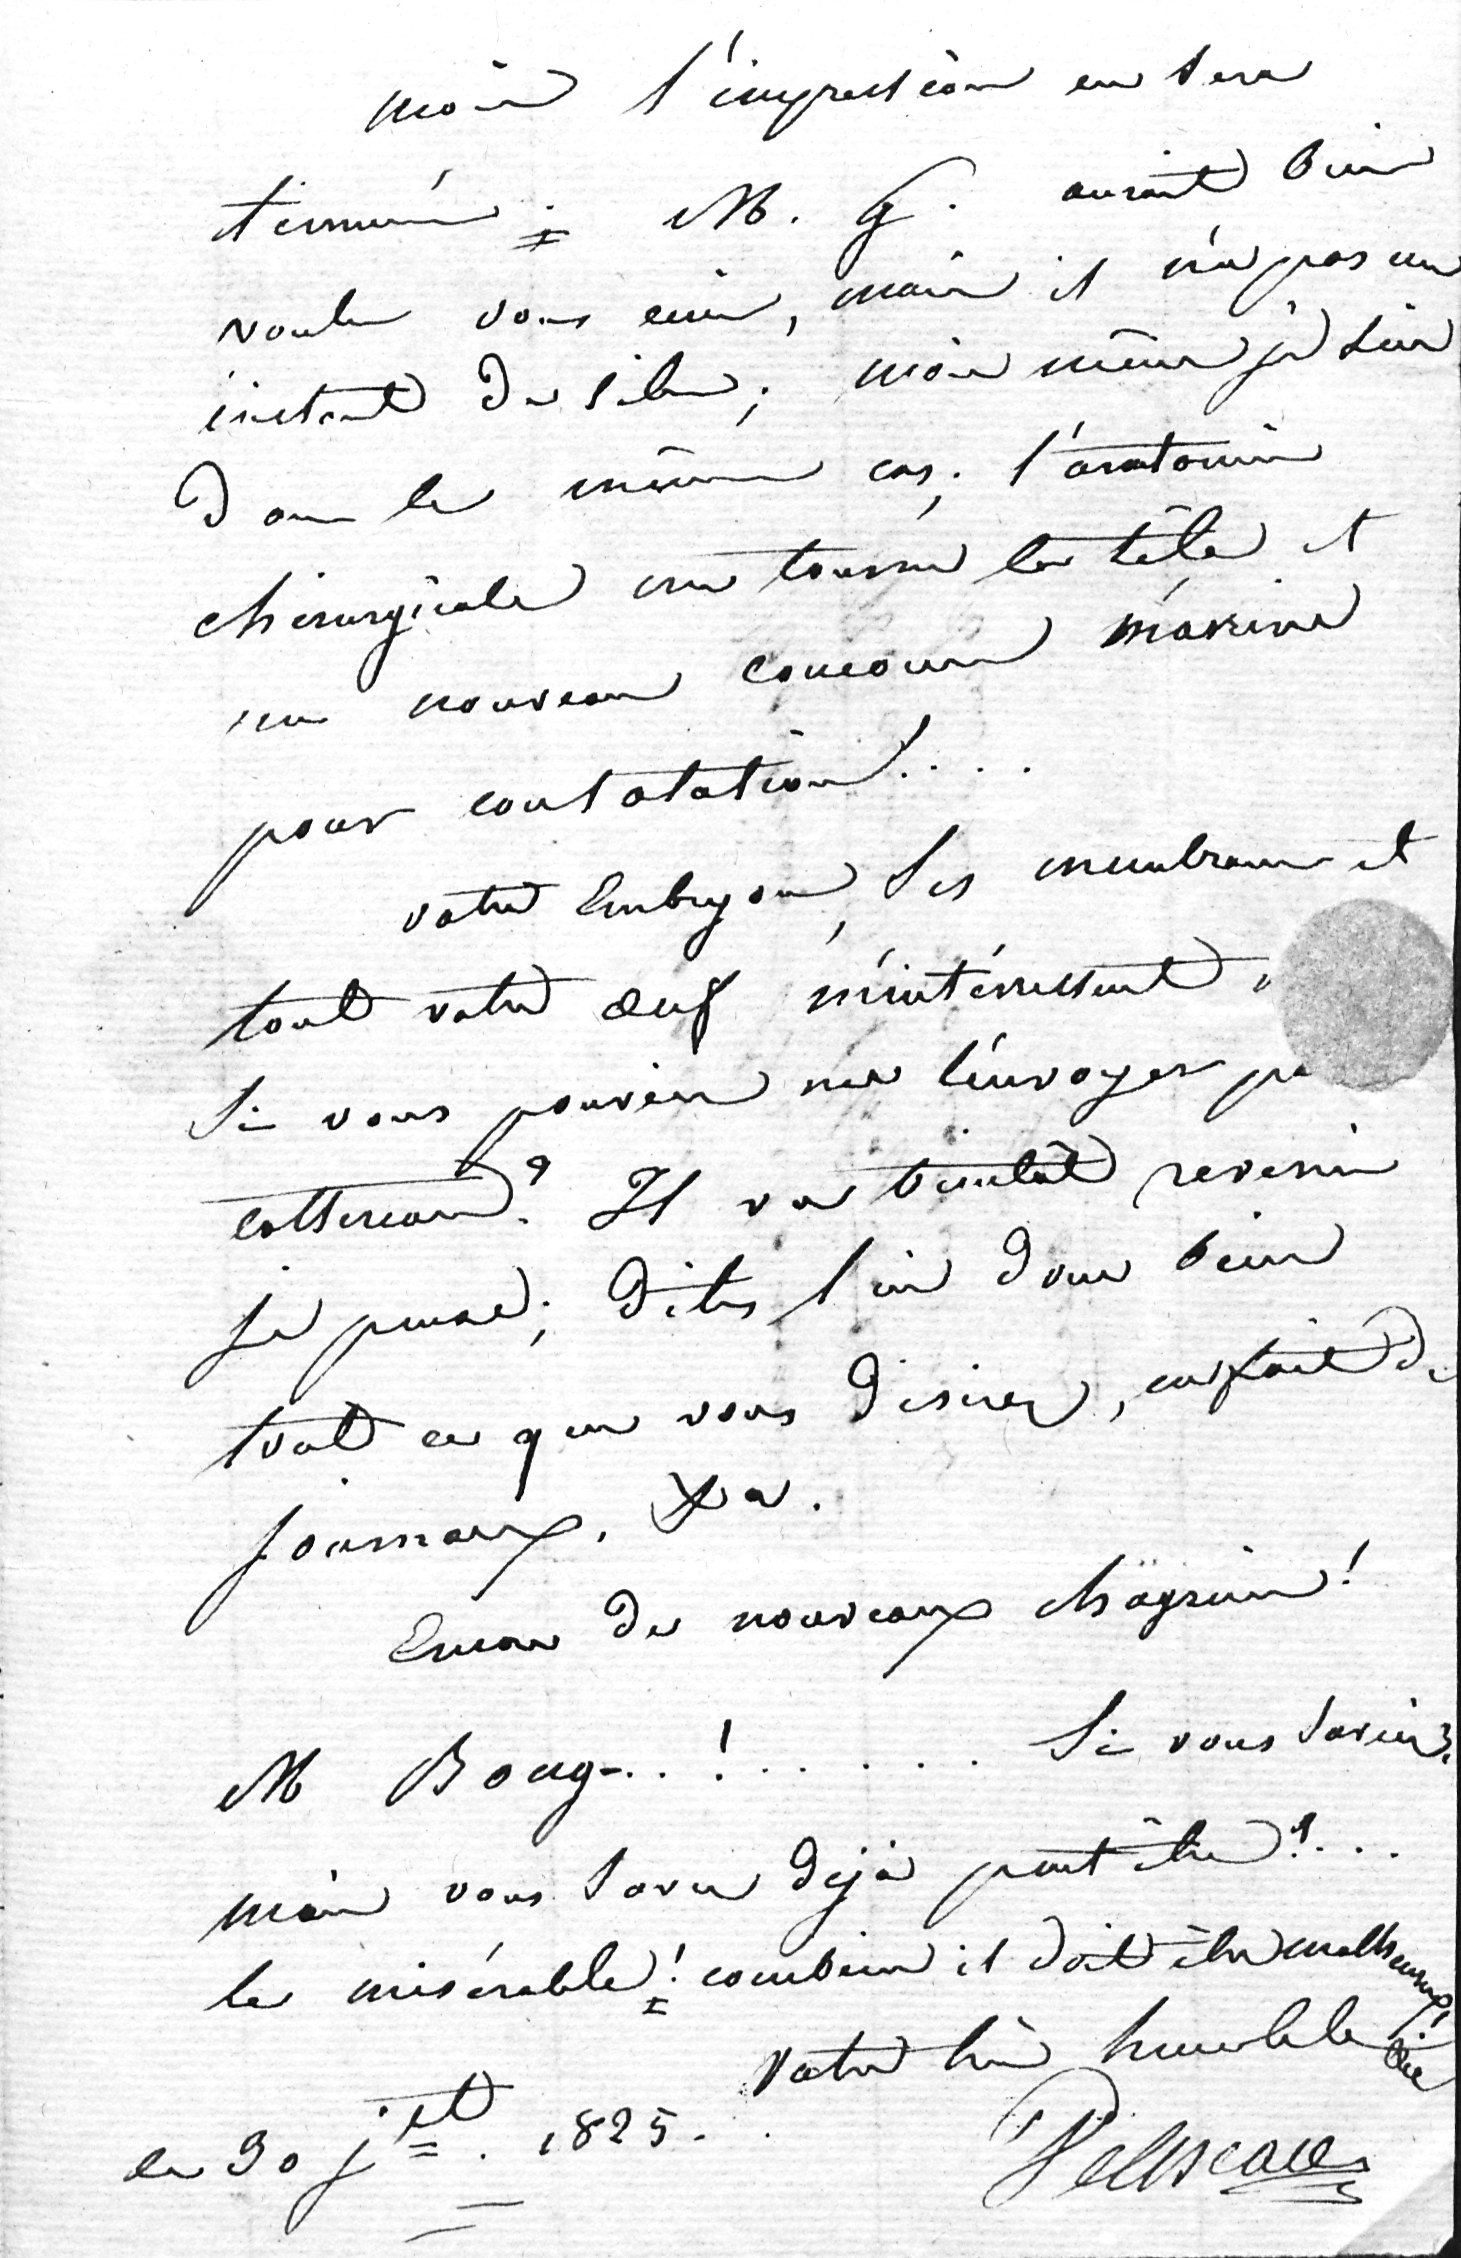 mois l'impression en sera
terminée. M. G. aurait bien
voulu vous écrire, mais il n'a pas un
instant de libre; moi même je suis
dans le même cas; l'anatomie
chirurgicale me tourne la tête et
un nouveau concours m'arrive
pour consolation!....
votre Embryon, ses membranes et
tout votre œuf m'intéressent
si vous pouviez me l'envoyer
Cottereau? Il va bientôt revenir
je pense; dites lui donc bien
tout ce que vous désirez, en fait de
journaux, &a.
Encore de nouveaux chagrins!
M Boug-..!...... Si vous saviez,
mais vous savez déjà peut être!...
le misérable! combien il doit être malheureux!
Votre très humble
le 30 jet. 1825.